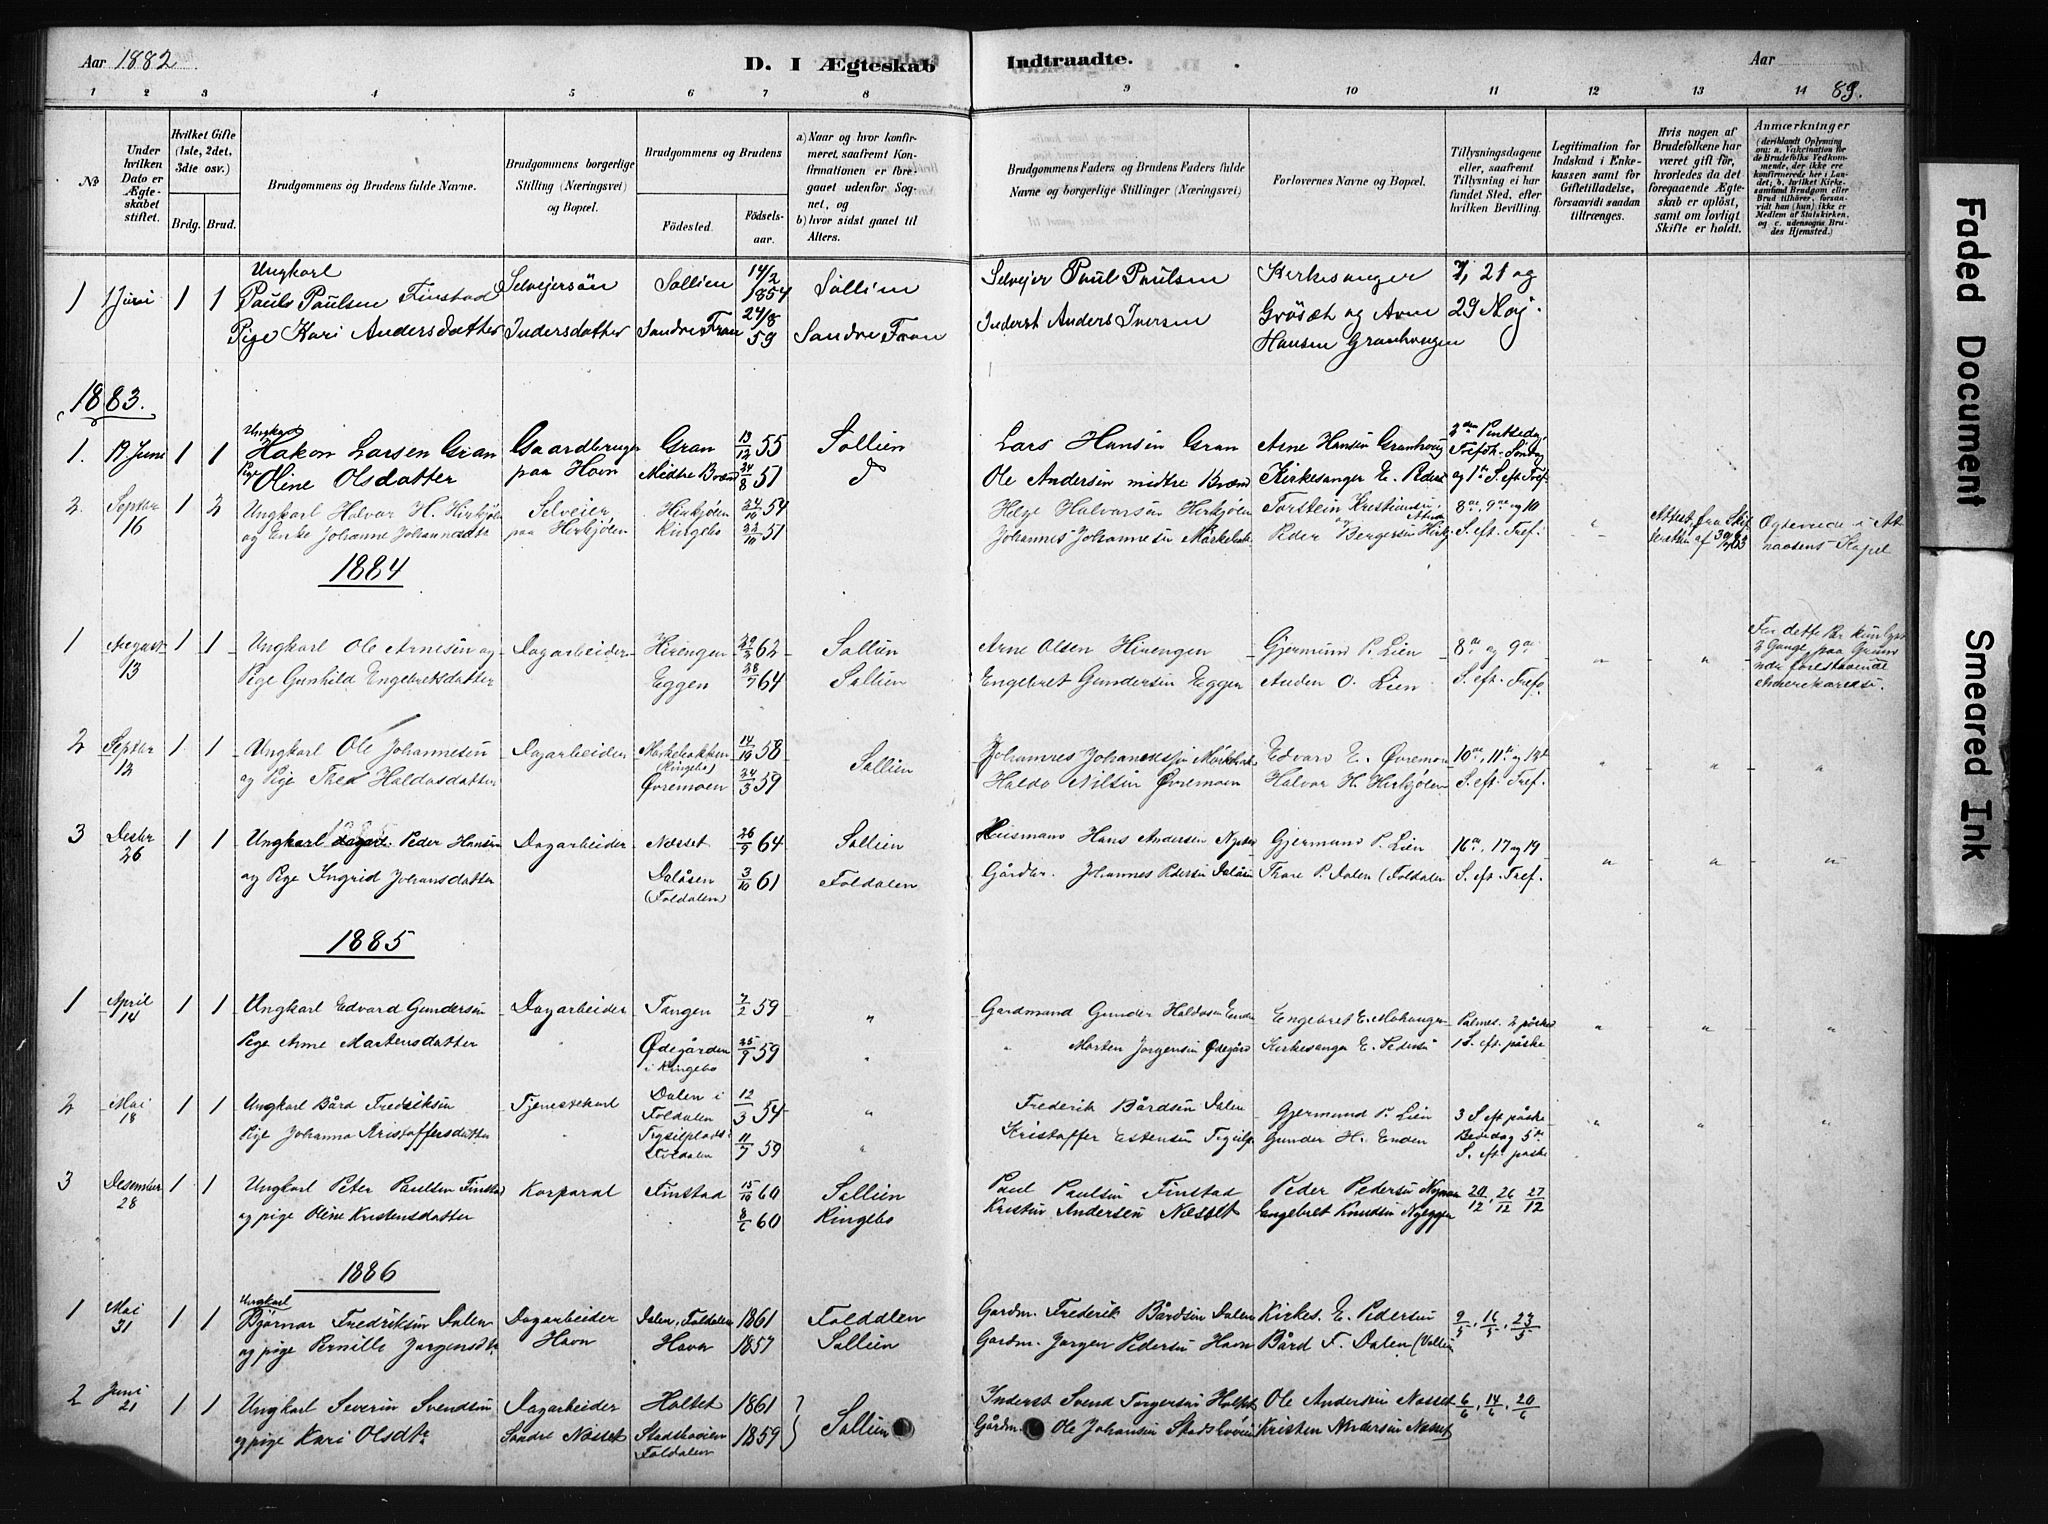 Aar 1882. D. I Ægteskab Indtraadte. Aar
1 2 3 4 5 6 7 8 9 10 11 12 13 14 89.
No
Under hvilken Dato er Ægteskabet stiftet.
Hvilket Gifte (1ste, 2det, 3dte osv.)
Brdg. Brud.
Brudgommens og Brudens fulde Navne.
Brudgommens borgerlige Stilling (Næringsvei) og Bopæl.
Brudgommens og Brudens
Födested.
Födselsaar.
a) Naar og hvor konfirmeret, saafremt Konfirmationen er foregaaet udenfor Sognet, og
b) hvor sidst gaaet til Alters.
Brudgommens Faders og Brudens Faders fulde Navne og borgerlige Stillinger (Næringsvei)
Forlovernes Navne og Bopæl.
Tillysningsdagene eller, saafremt Tillysning ei har fundet Sted, efter hvilken Bevilling.
Legitimation for Indskud i Enkekassen samt for Giftetilladelse, forsaavidt saadan tiltrænges.
Hvis nogen af Brudefolkene har været gift för, hvorledes da det foregaaende Ægteskab er oplöst, samt om lovligt Skifte er holdt.
Anmærkninger
(deriblandt Oplysning om: a. Vakcination for de Brudefolks Vedkommende, der ikke ere konfirmerede her i Landet; b. hvilket Kirkesamfund Brudgom eller Brud tilhörer, forsaavidt han (hun) ikke er Medlem af Statskirken, og c. udensogns Brudes Hjemsted.)
1 1 Juni 1 1 Ungkarl Pauls Paulsen Finstad Selveiersön Sollien 14/2 1854 Sollien Selveier Paul Paulsen Kirkesanger 7, 21 og
Pige Kari Andersdatter Indersdatter Søndre Fron 24/8 59 Søndre Fron Inderst Anders Iversen Grösæt og Arne 29 Maj.
Hansen Granhougen
1883.
1. 17 Juni 1 1 Ungkarl Hakon Larsen Gran Gaardbruger Gran 13/12 55 Sollien Lars Hansen Gran Arne Hansen Granhoug 2den Pintsedag
Pige Oline Olsdatter paa Hovn Midtre Bræn 24/8 51 d Ole Andersen midtre Bræn Kirkesanger E. Peders og 1ste S. eft. Tref
2. Septbr 16 1 2 Ungkarl Halvor H. Hirkjølen Selveier Hirkjølen 24/10 54 Helge Halvorsen Hirkjølen Torstein Kristiansen 8de, 9de og 10 Attest fra Skif Ægteviede i At
og Enke Johanne Johannesdtr paa Hirkjølen Ringebo 22/10 51 Johannes Johannesen Mørkebak Peder Bergersen S. eft. Tref. naasens Kapel
1884
1 August 13 1 1 Ungkarl Ole Arnesen og Dagarbeider Hirengen 62 Sollien Arne Olsen Hirengen Gjermund P. Lien 8de og 9de " " For dette Par kun lyst
Pige Gunhild Engebretsdatter Eggen 28/7 64 Sollien Engebret Gundersen Eggen Anders O. Lien S. eft. Tref. 2 Gange paa Grund
af forestaaende
Amerikareise.
2 Septbr 12 1 1 Ungkarl Ole Johannesen Dagarbeider Mørkebakken (Ringebo) 14/10 58 Sollien Johannes Johannessen Mørkebak Edvard E. Øvremoen 10de, 11te og 12te " " "
og Pige Thea Haldosdatter Øvremoen 24/3 59 Haldo Nilsen Øvremoen Halvor H. Hirkjølen S. eft. Tref.
3 Desbr 26 1 1 Ungkarl Peder Hansen Dagarbeider Nesset 26/9 64 Sollien Husmand Hans Andersen Gjermund P. Lien 16de, 17 og 19 " " "
og Pige Ingrid Johansdatter Daløsen (Foldalen) 3/10 61 Foldalen Gårdbr. Johannes Pedersen Daløsen Thore P. Dalen (Foldalen S. eft. Tref.
1885
1 April 14 1 1 Ungkarl Edvard Gundersen Dagarbeider Tangen 7/2 59 " Gardmand Gunder Haldosen Enden Engebret E. Palmes. 2 påske " " "
Pige Anne Martensdatter " Ødegården i Ringebo 25/9 59 " " Morten Jorgensen Ødegård Kirkesanger E. Pedersen 1 S. eft. påske
2 Mai 18 1 1 Ungkarl Bård Fredriksen Tjenestekarl Dalen i Foldalen 12/3 54 " Frederik Bårdsen Dalen Gjermund P. Lien 3 S. eft. påske " " "
Pige Johanna Kristoffersdatter " Trysilplads Foldalen 11/9 59 " Kristoffer Estensen Gunder H. Enden Bededag 5te
S. eft. påske
3 Desember 28 1 1 Ungkarl Peter Paulsen Finstad Korporal Finstad 15/10 60 Sollien Paul Paulsen Finstad Peder Pedersen 20/12, 26/12 27/12
og pige Oline Kristensdatter 8/6 60 Ringebo Kristen Andersen Nesset Engebret Knudsen Nyeggen
1886
1 Mai 31 1 1 Ungkarl Bjørnar Fredriksen Dalen Dagarbeider Dalen, Foldalen 1861 Folddlen Gardm. Frederik Bårdsen Dalen Kirkes. E. Pedersen 9/5, 16/5, 23/5
og pige Pernille Jorgensdtr Hovn Hovn 1857 Sollien Gardm. Jorgen Pedersen Hovn Bård F. Dalen
2 Juni 21 1 1 Ungkarl Severin Svendsen Dagarbeider Holtet 1861 Sollien Inderst Svend Torgersen Holtet Ole Andersen Nesset 6/6, 14/6, 20/6
og pige Kari Olsdtr Søndre Nesset Foldalen 1859 Gårdm. Ole Johansen Kristen Andersen Nesset
Faded Document
Smeared Ink